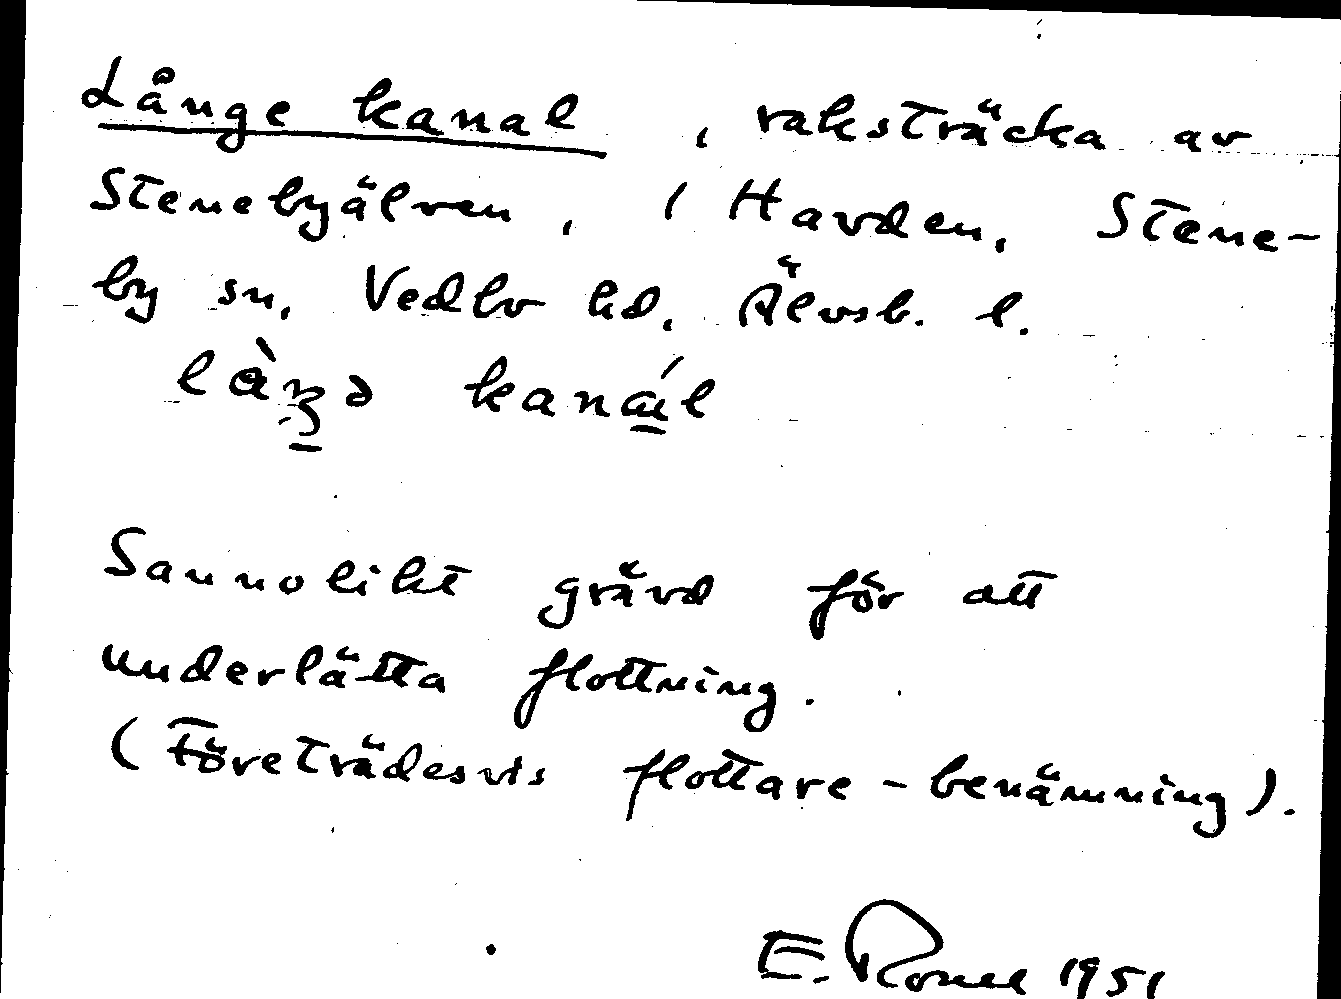 Långe kanal, raksträcka av
Stenebyälven, i Havden, Stene-
by sn, Vedbo hd, Älvsb. l.
kanál
Sannolikt grävd för att
underlätta flottning.
(Företrädesvis flottare-benämning).
E. 1951